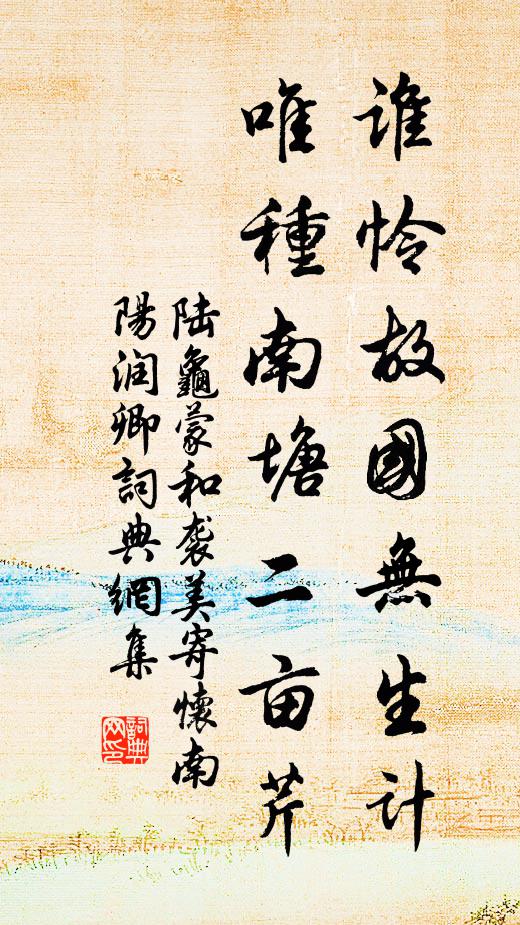 谁怜故國無生计
唯種南塘二亩芹
陆龜蒙和袭美寄懷南
陽润卿詞典網集
詞典
网印